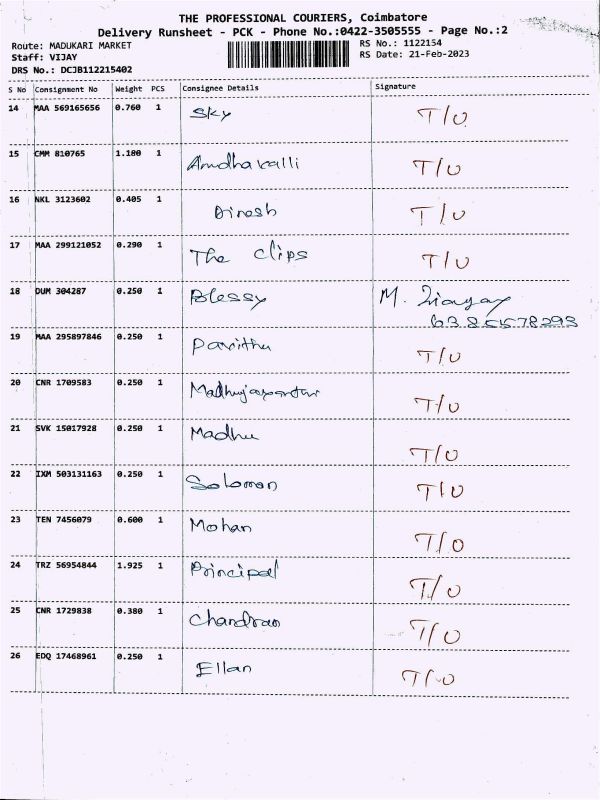 THE PROFESSIONAL COURIERS, Coimbatore
Delivery Runsheet - PCK - Phone No.:0422-3505555 - Page No.:2
Route: MADUKARI MARKET RS No.: 1122154
Staff: VIJAY RS Date: 21-Feb-2023
DRS No.: DCJB112215402
S No Consignment No Weight PCS Consignee Details Signature
14 MAA 569165656 0.760 1 Sky T/O
15 CMM 810765 1.180 1 T/O
16 NKL 3123602 0.405 1 Dinesh T/O
17 MAA 299121052 0.290 1 The Clips T/O
18 DUM 304287 0.250 1 Blessy M.
19 MAA 295897846 0.250 1 Pavithu T/O
20 CNR 1709583 0.250 1 T/O
21 SVK 15017928 0.250 1 Madhu T/O
22 IXM 503131163 0.250 1 Solomon T/O
23 TEN 7456079 0.600 1 Mohan T/O
24 TRZ 56954844 1.925 1 Principal T/O
25 CNR 1729838 0.380 1 Chandran T/O
26 EDQ 17468961 0.250 1 Ellan T/O